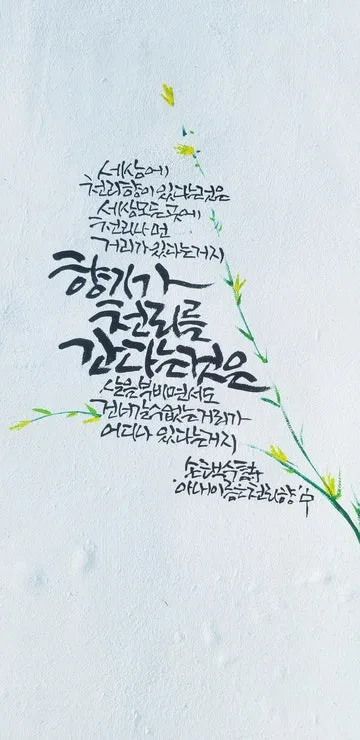 세상에
천리향이 있다는 것은
세상 모든 곳에
천리나 먼
거리가 있다는거지
향기가
천리를
간다는 것은
살을 부비면서도
건너갈 수 없는 거리가
어디나 있다는거지
손택수
'아내의 이름은 천리향' 中